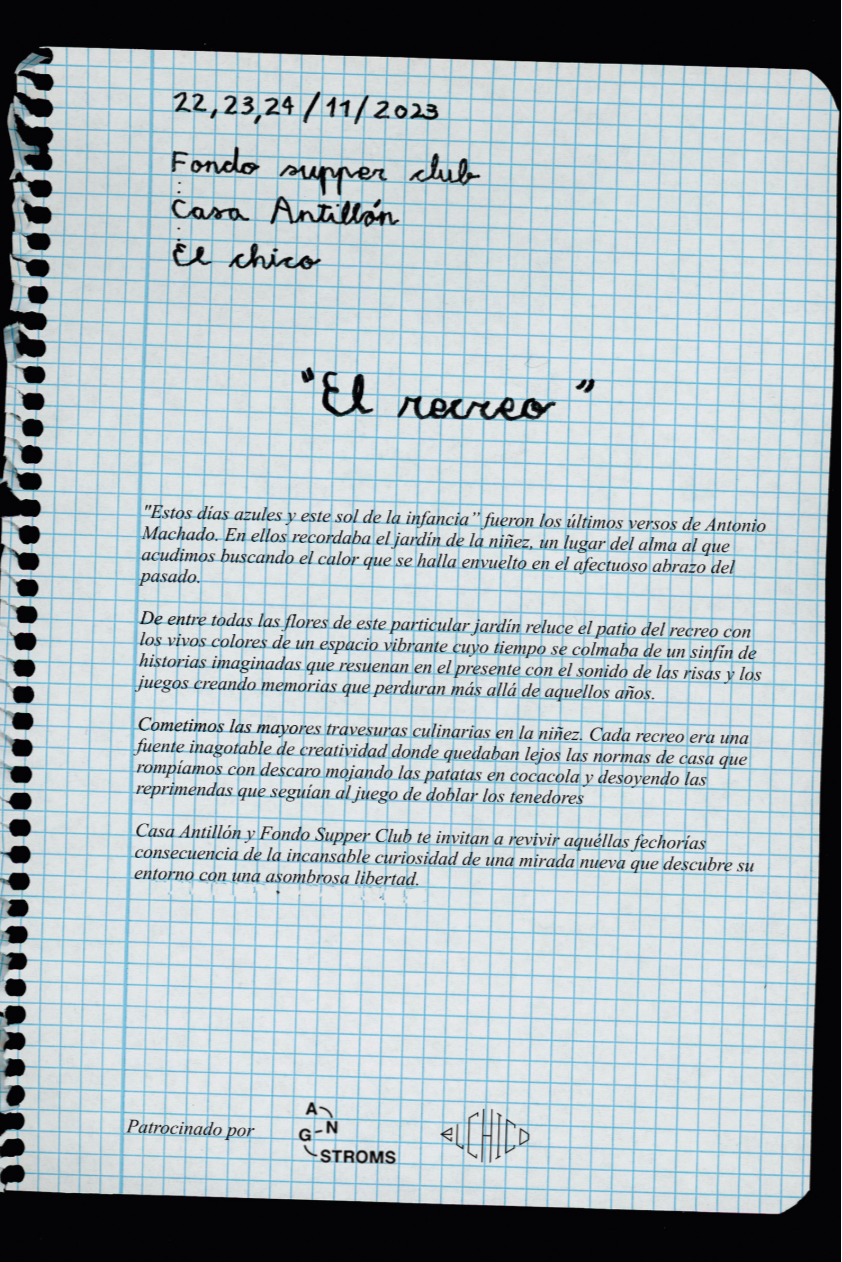 22,23,24/11/2023
Fondo supper club
:
Casa Antillón
:
El chico
"El recreo"
"Estos días azules y este sol de la infancia” fueron los últimos versos de Antonio
Machado. En ellos recordaba el jardín de la niñez, un lugar del alma al que
acudimos buscando el calor que se halla envuelto en el afectuoso abrazo del
pasado.
De entre todas las flores de este particular jardín reluce el patio del recreo con
los vivos colores de un espacio vibrante cuyo tiempo se colmaba de un sinfín de
historias imaginadas que resuenan en el presente con el sonido de las risas y los
juegos creando memorias que perduran más allá de aquellos años.
Cometimos las mayores travesuras culinarias en la niñez. Cada recreo era una
fuente inagotable de creatividad donde quedaban lejos las normas de casa que
rompíamos con descaro mojando las patatas en cocacola y desoyendo las
reprimendas que seguían al juego de doblar los tenedores
Casa Antillón y Fondo Supper Club te invitan a revivir aquéllas fechorías
consecuencia de la incansable curiosidad de una mirada nueva que descubre su
entorno con una asombrosa libertad.
Patrocinado por
A
G-N
STROMS
ELCHICO